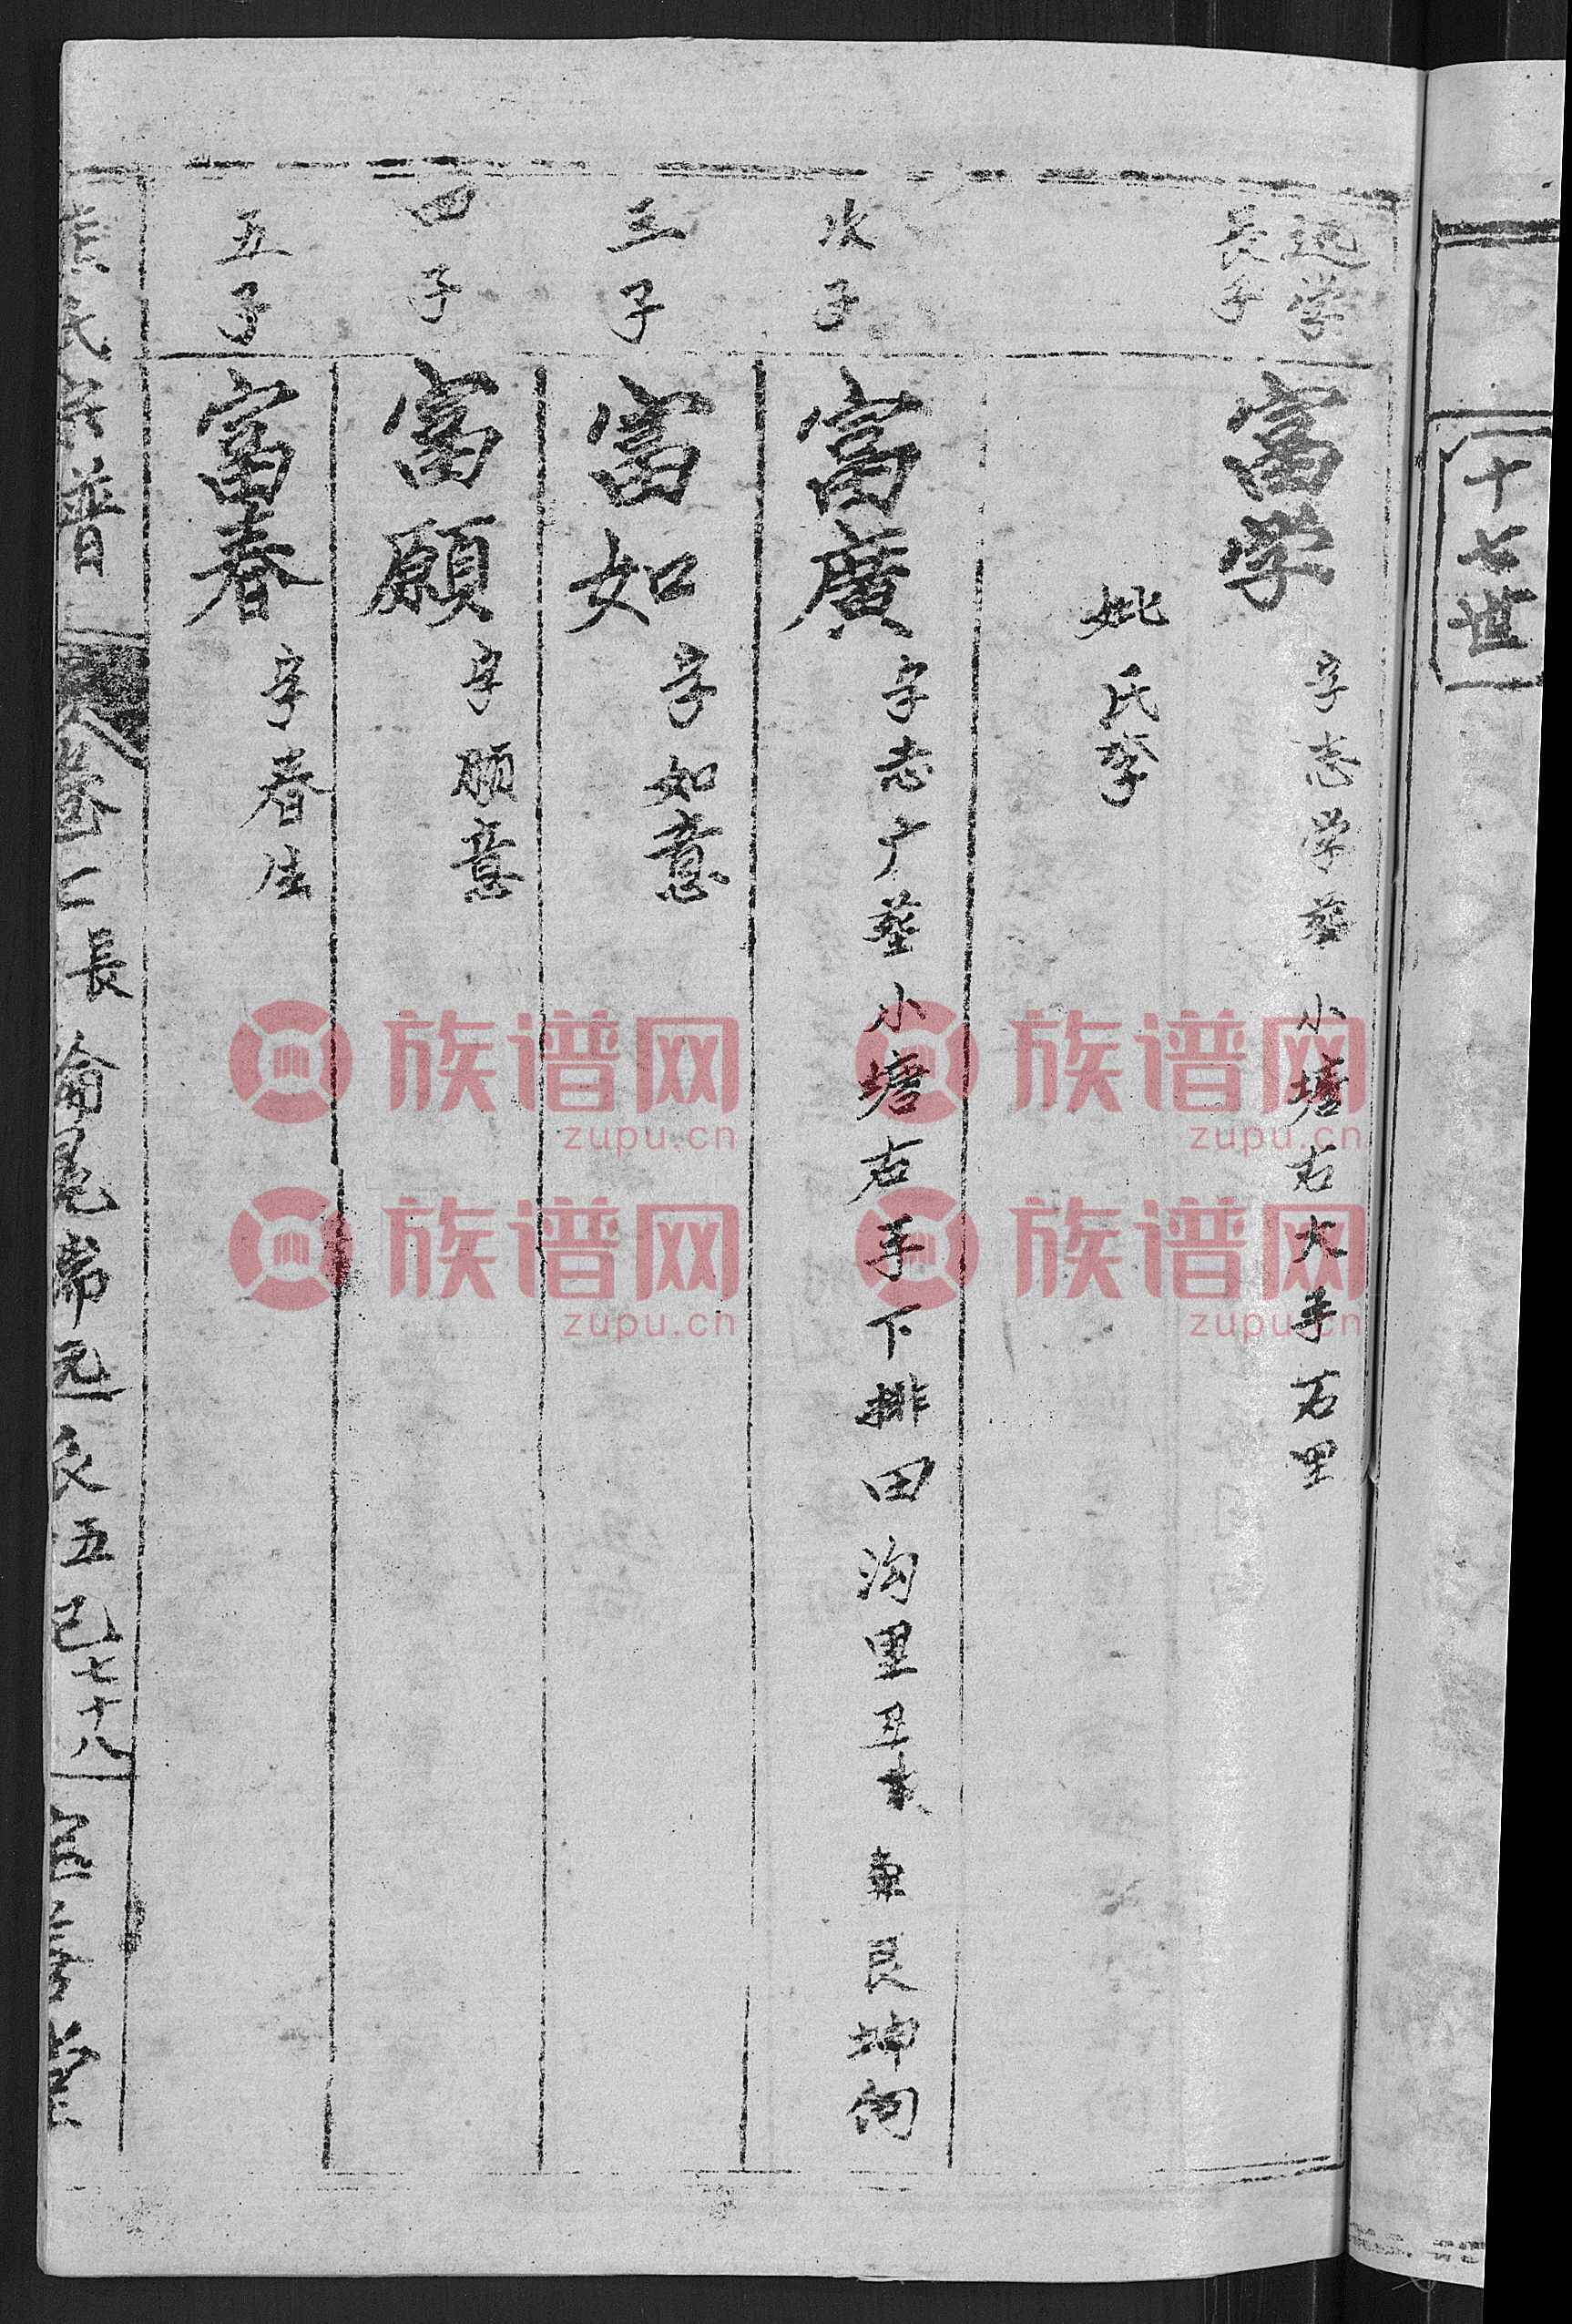 十七世
学
長子
富学
字志学葬小塘右大手右里
姚氏
次子
富廣
字志广葬小塘右手下排田沟里
艮坤向
三子
富如
字如意
四子
富願
字願意
五子
富春
字春生
氏
譜
卷二
長
五
七十八
族谱网
zupu.cn
族谱网
zupu.cn
族谱网
zupu.cn
族谱网
zupu.cn